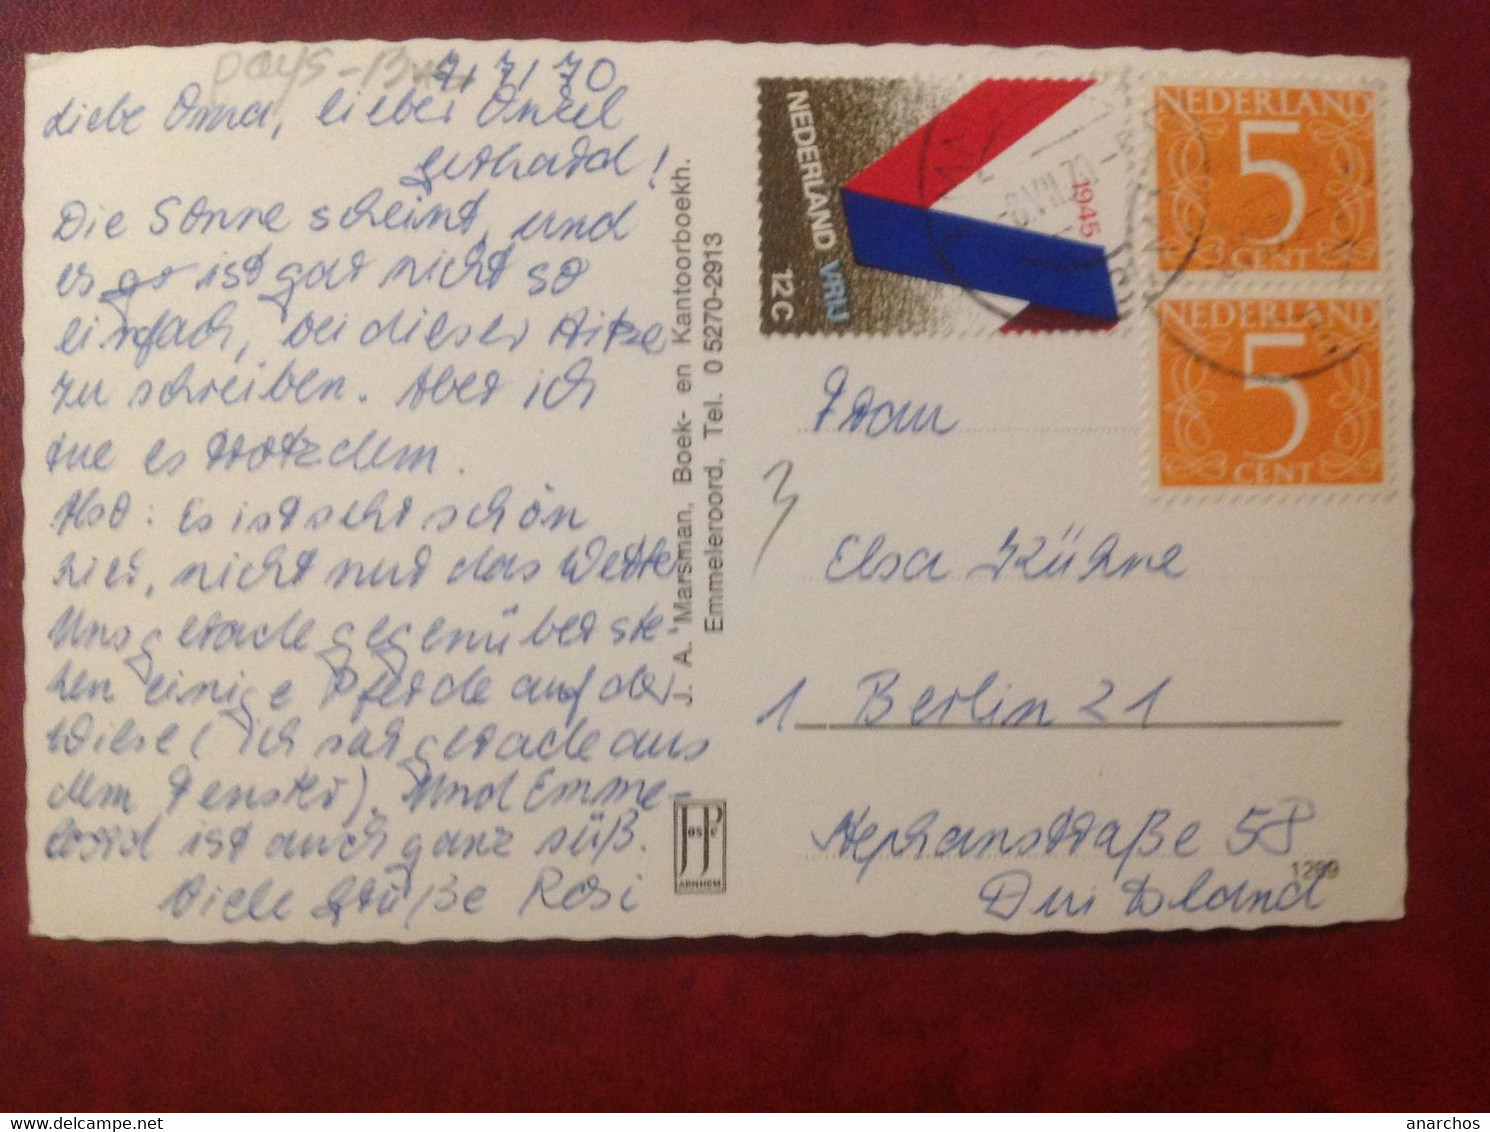 Pays-Bas
7/7/70
Liebe Oma, lieber Onkel
Gerhard!
Die Sonne scheint, und
es ist gar nicht so
einfach, bei dieser Hitze
zu schreiben. Aber ich
tue es trotzdem.
Also: Es ist sehr schön
hier, nicht nur das Wetter
Uns gerade gegenüber ste-
hen einige Pferde auf der
Wiese (ich sah gerade aus
dem Fenster). Und Emme-
loord ist auch ganz süß.
Viele Grüße Rosi
J. A. Marsman, Boek- en Kantoorboekh.
Emmeleroord, Tel. 0 5270-2913
JosPé
ARNHEM
NEDERLAND VRIJ
12c
1945
NEDERLAND
5
CENT
NEDERLAND
5
CENT
-8.VII.70
Frau
3
Elsa Kühne
1 Berlin 21
Stephanstraße 58
1289
Deutschland
anarchos